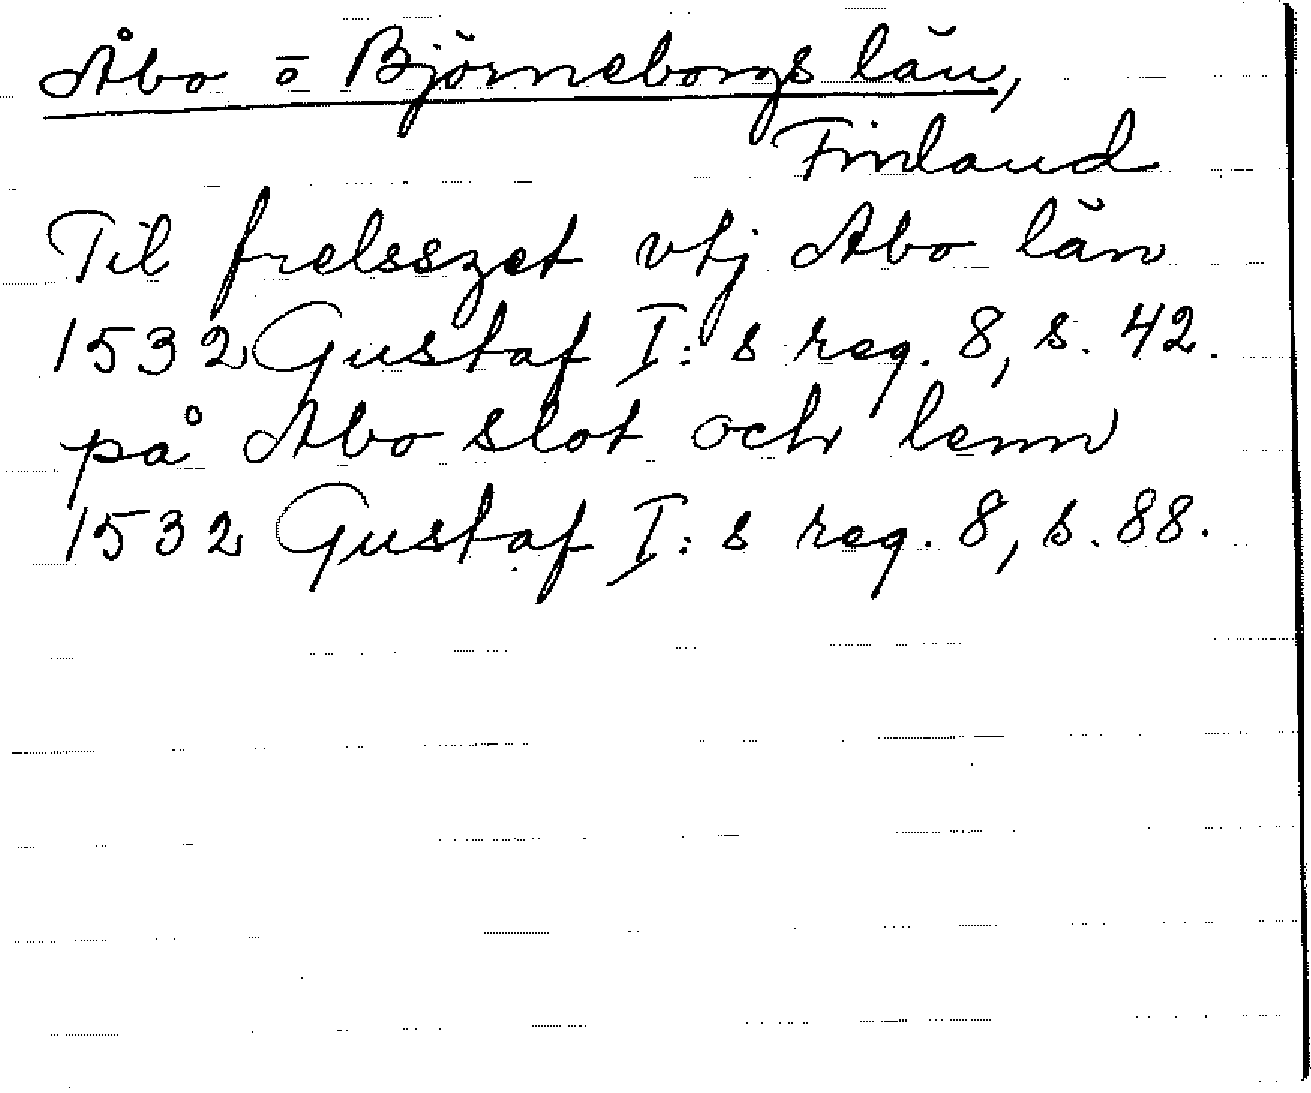 Åbo o Björneborgs län,
Finland
Til frelsszet vtj Abo län
1532 Gustaf I:s reg. 8, s. 42.
på Abo slot och lenn
1532 Gustaf I:s reg. 8, s. 88.